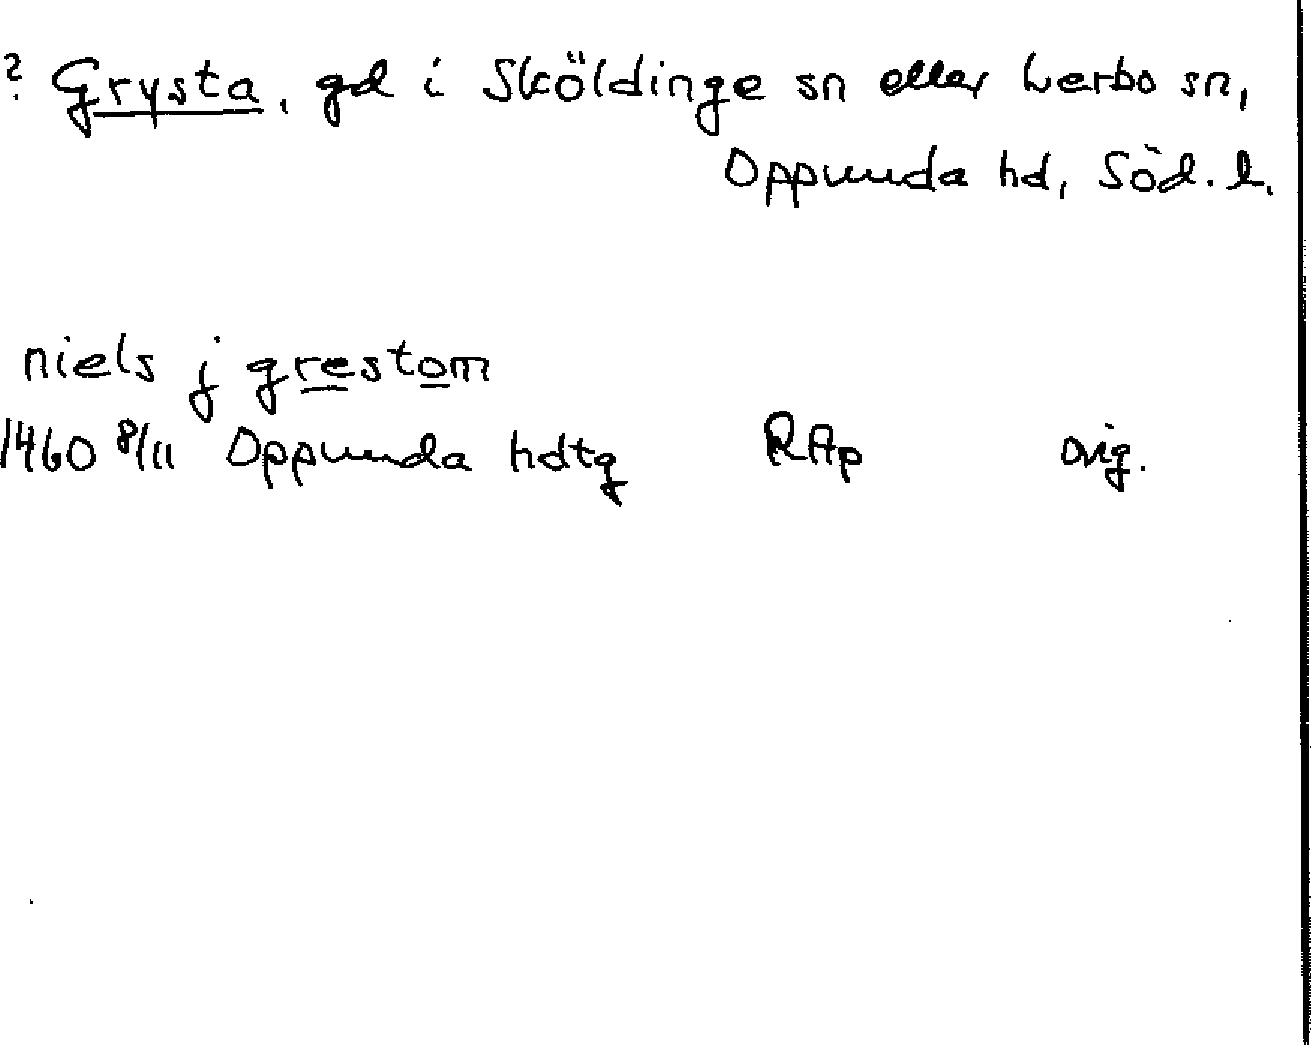 ? Grysta, gd i Sköldinge sn eller Lerbo sn,
Oppunda hd, Söd. l.
niels j grestom
1460 8/11 Oppunda hdtg RAp orig.